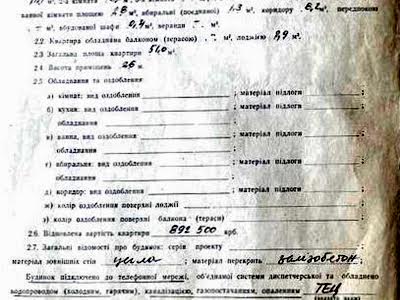 ванної кімнати площею 2,8 м², вбиральні (поєднаної) 1,3 м², коридору 6,2 м², передпокою
м², вбудованої шафи 0,4 м², веранди — м².
2.2. Квартира обладнана балконом (терасою) — м², лоджією м².
2.3. Загальна площа квартири 51,0 м².
2.4. Висота приміщень 2,5 м.
2.5. Обладнання та оздоблення
а) кімнат: вид оздоблення ; матеріал підлоги ;
б) кухні: вид оздоблення ; матеріал підлоги ;
обладнання ;
в) ванна, вид оздоблення ; матеріал підлоги
обладнання ;
г) вбиральня: вид оздоблення ; матеріал підлоги
обладнання ;
д) коридор: вид оздоблення ; матеріал підлоги ;
е) колір оздоблення поверхні лоджії ;
ж) колір оздоблення поверхні балкона (тераси)
2.6. Відновлена вартість квартири 892 500 крб.
2.7. Загальні відомості про будинок: серія проекту
матеріал зовнішніх стін цегла ; матеріал перекрить залізобетон
Будинок підключено до телефонної мережі, об'єднаної системи диспетчерської та обладнено
водопроводом (холодним, гарячим), каналізацією, газопостачанням, опаленням ТЕЦ